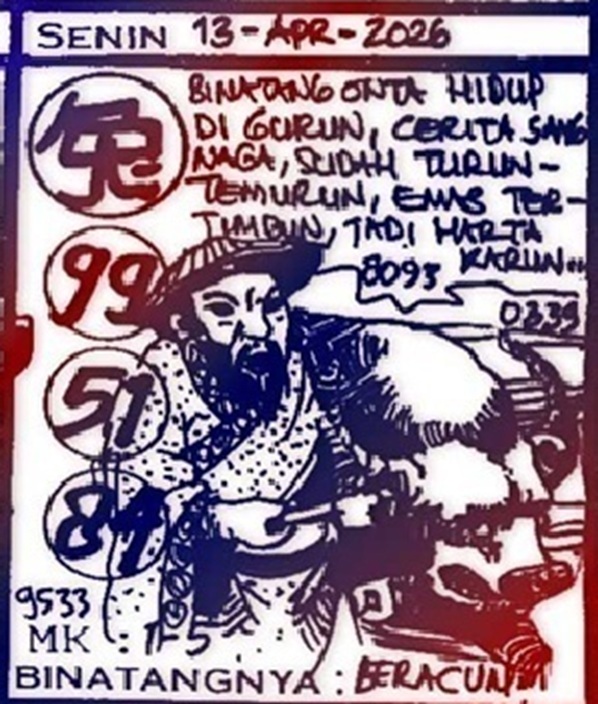 SENIN 13-APR-2026
BINATANG ONTA HIDUP
DI GURUN, CERITA SANG
NAGA, SUDAH TURUN-
TEMURUN, EMAS TER-
TIMBUN, TADI HARTA
KARUN...
兔
99
8093
0339
51
9533
MK : 1-5
BINATANGNYA : BERACUN